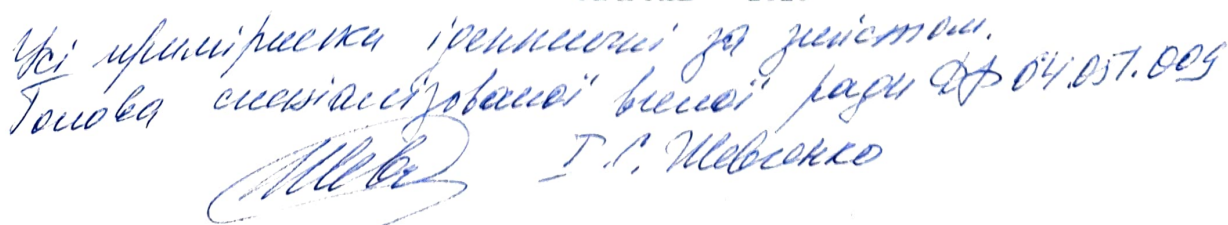 Усі примірники ідентичні за змістом.
Голова спеціалізованої вченої ради ДФ 04.051.009
І. С. Шевченко